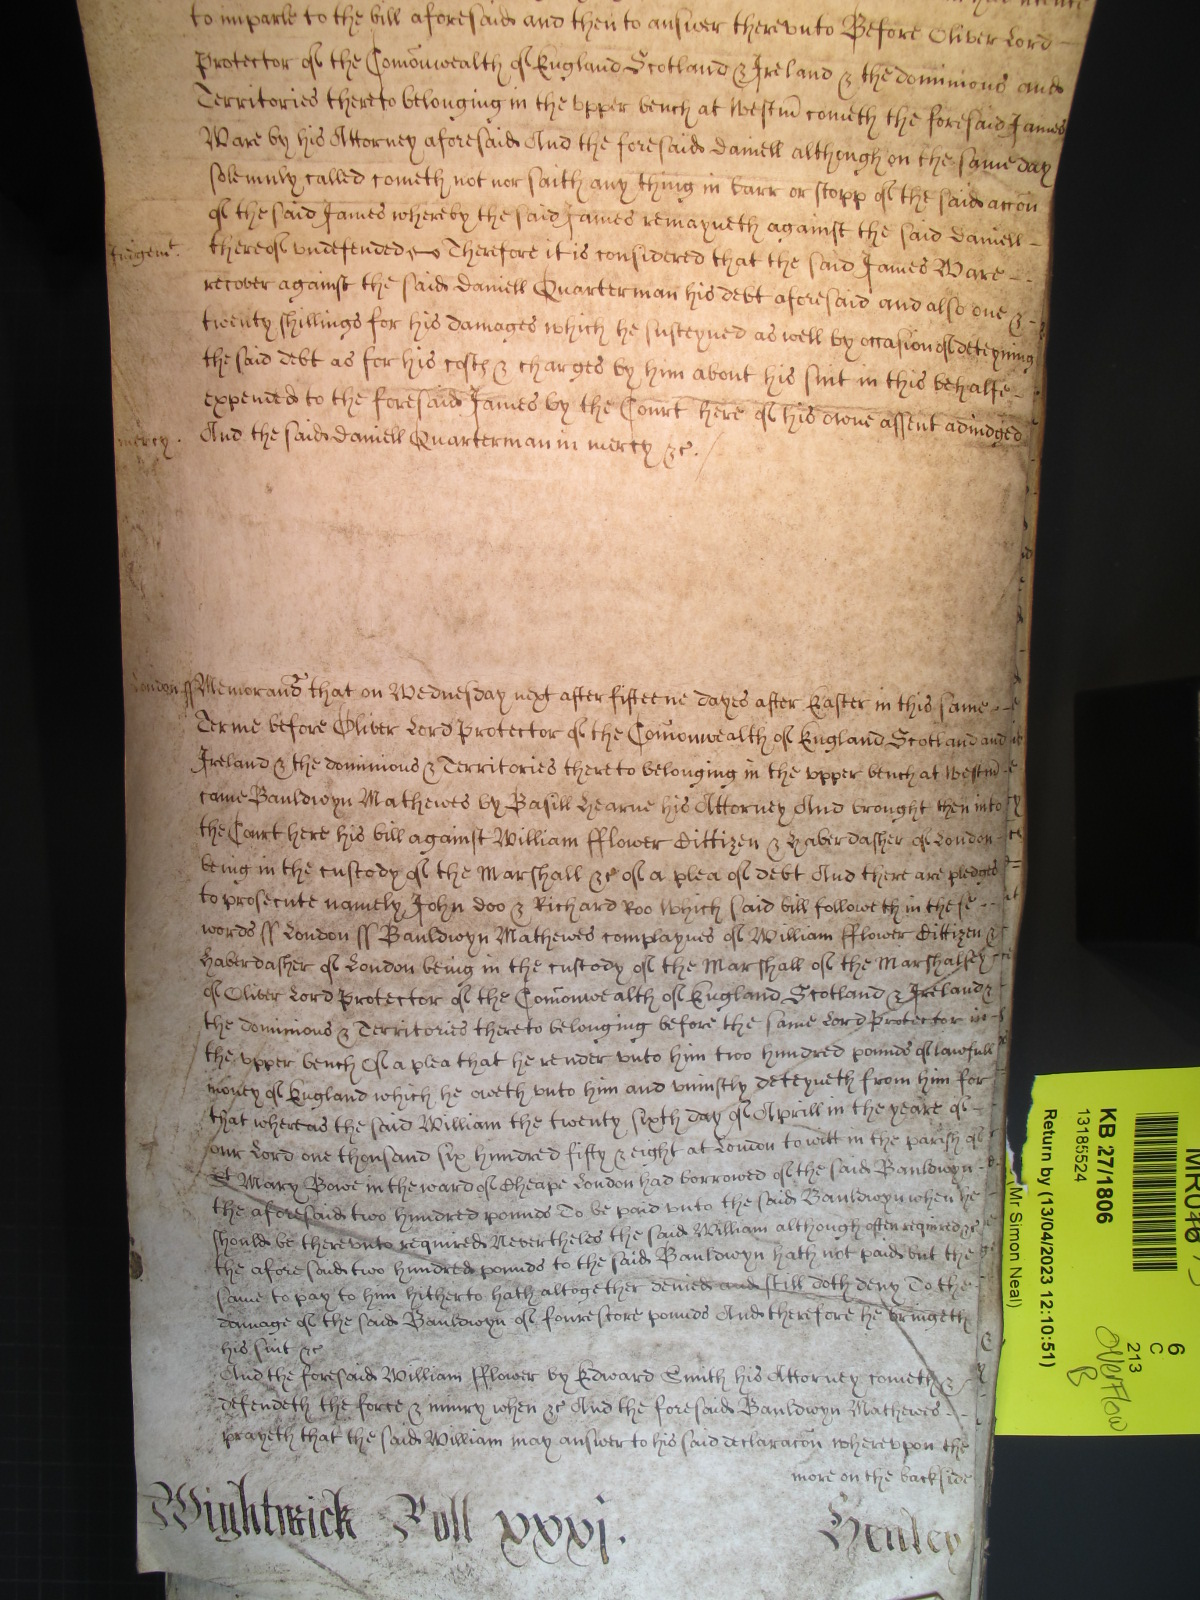 to imparle to the bill aforesaid and then to answer therevnto Before Oliver Lord
Protector of the Comonwealth of England Scotland & Ireland & the dominions and
Territories thereto belonging in the vpper bench at Westm cometh the foresaid James
Ware by his Attorney aforesaid And the foresaid Daniell although on the same day
solemnly called cometh not nor saith any thing in barr or stopp of the said accon
of the said James whereby the said James remayneth against the said Daniell
Judgemt. thereof vndefended Therefore it is considered that the said James Ware
recover against the said Daniell Quarterman his debt aforesaid and also one &
twenty shillings for his damages which he susteyned as well by occasion of deteyning
the said debt as for his costs & charges by him about his suit in this behalfe
expended to the foresaid James by the Court here of his owne assent adiudged
mercy. And the said Daniell Quarterman in mercy &c.
London ss Memorand that on Wednesday next after fifteene dayes after Easter in this same
Terme before Oliver Lord Protector of the Comonwealth of England Scotland and
Ireland & the dominions & Territories thereto belonging in the vpper bench at Westm
came Bauldwyn Mathewes by Basill Hearne his Attorney And brought then into
the Court here his bill against William fflower Cittizen & Haberdasher of London
being in the custody of the Marshall &c of a plea of debt And there are pledges
to prosecute namely John Doo & Richard Roo Which said bill followeth in these
words ss London ss Bauldwyn Mathewes complaynes of William fflower Cittizen &
Haberdasher of London being in the custody of the Marshall of the Marshalsey
of Oliver Lord Protector of the Comonwealth of England Scotland & Ireland &
the dominions & Territories thereto belonging before the same Lord Protector in
the vpper bench Of a plea that he render vnto him two hundred pounds of lawfull
money of England which he oweth vnto him and vniustly deteyneth from him for
that whereas the said William the twenty sixth day of Aprill in the yeare of
our Lord one thousand six hundred fifty & eight at London to witt in the parish of
St Mary Bowe in the ward of Cheape London had borrowed of the said Bauldwyn
the aforesaid two hundred pounds To be paid vnto the said Bauldwyn when he
should be therevnto required Nevertheles the said William although often required &c
the aforesaid two hundred pounds to the said Bauldwyn hath not paid but the
same to pay to him hitherto hath altogether denied and still doth deny To the
damage of the said Bauldwyn of fourescore pounds And therefore he bringeth
his suit &c
And the foresaid William fflower by Edward Smith his Attorney cometh &
defendeth the force & iniury when &c And the foresaid Bauldwyn Mathewes
prayeth that the said William may answer to his said declaracon wherevpon the
more on the backside
Wightwick Roll xxxj. Henley
KB 27/1806
13185524
Return by (13/04/2023 12:10:51)
(Mr Simon Neal)
6
C
213
Overflow
B